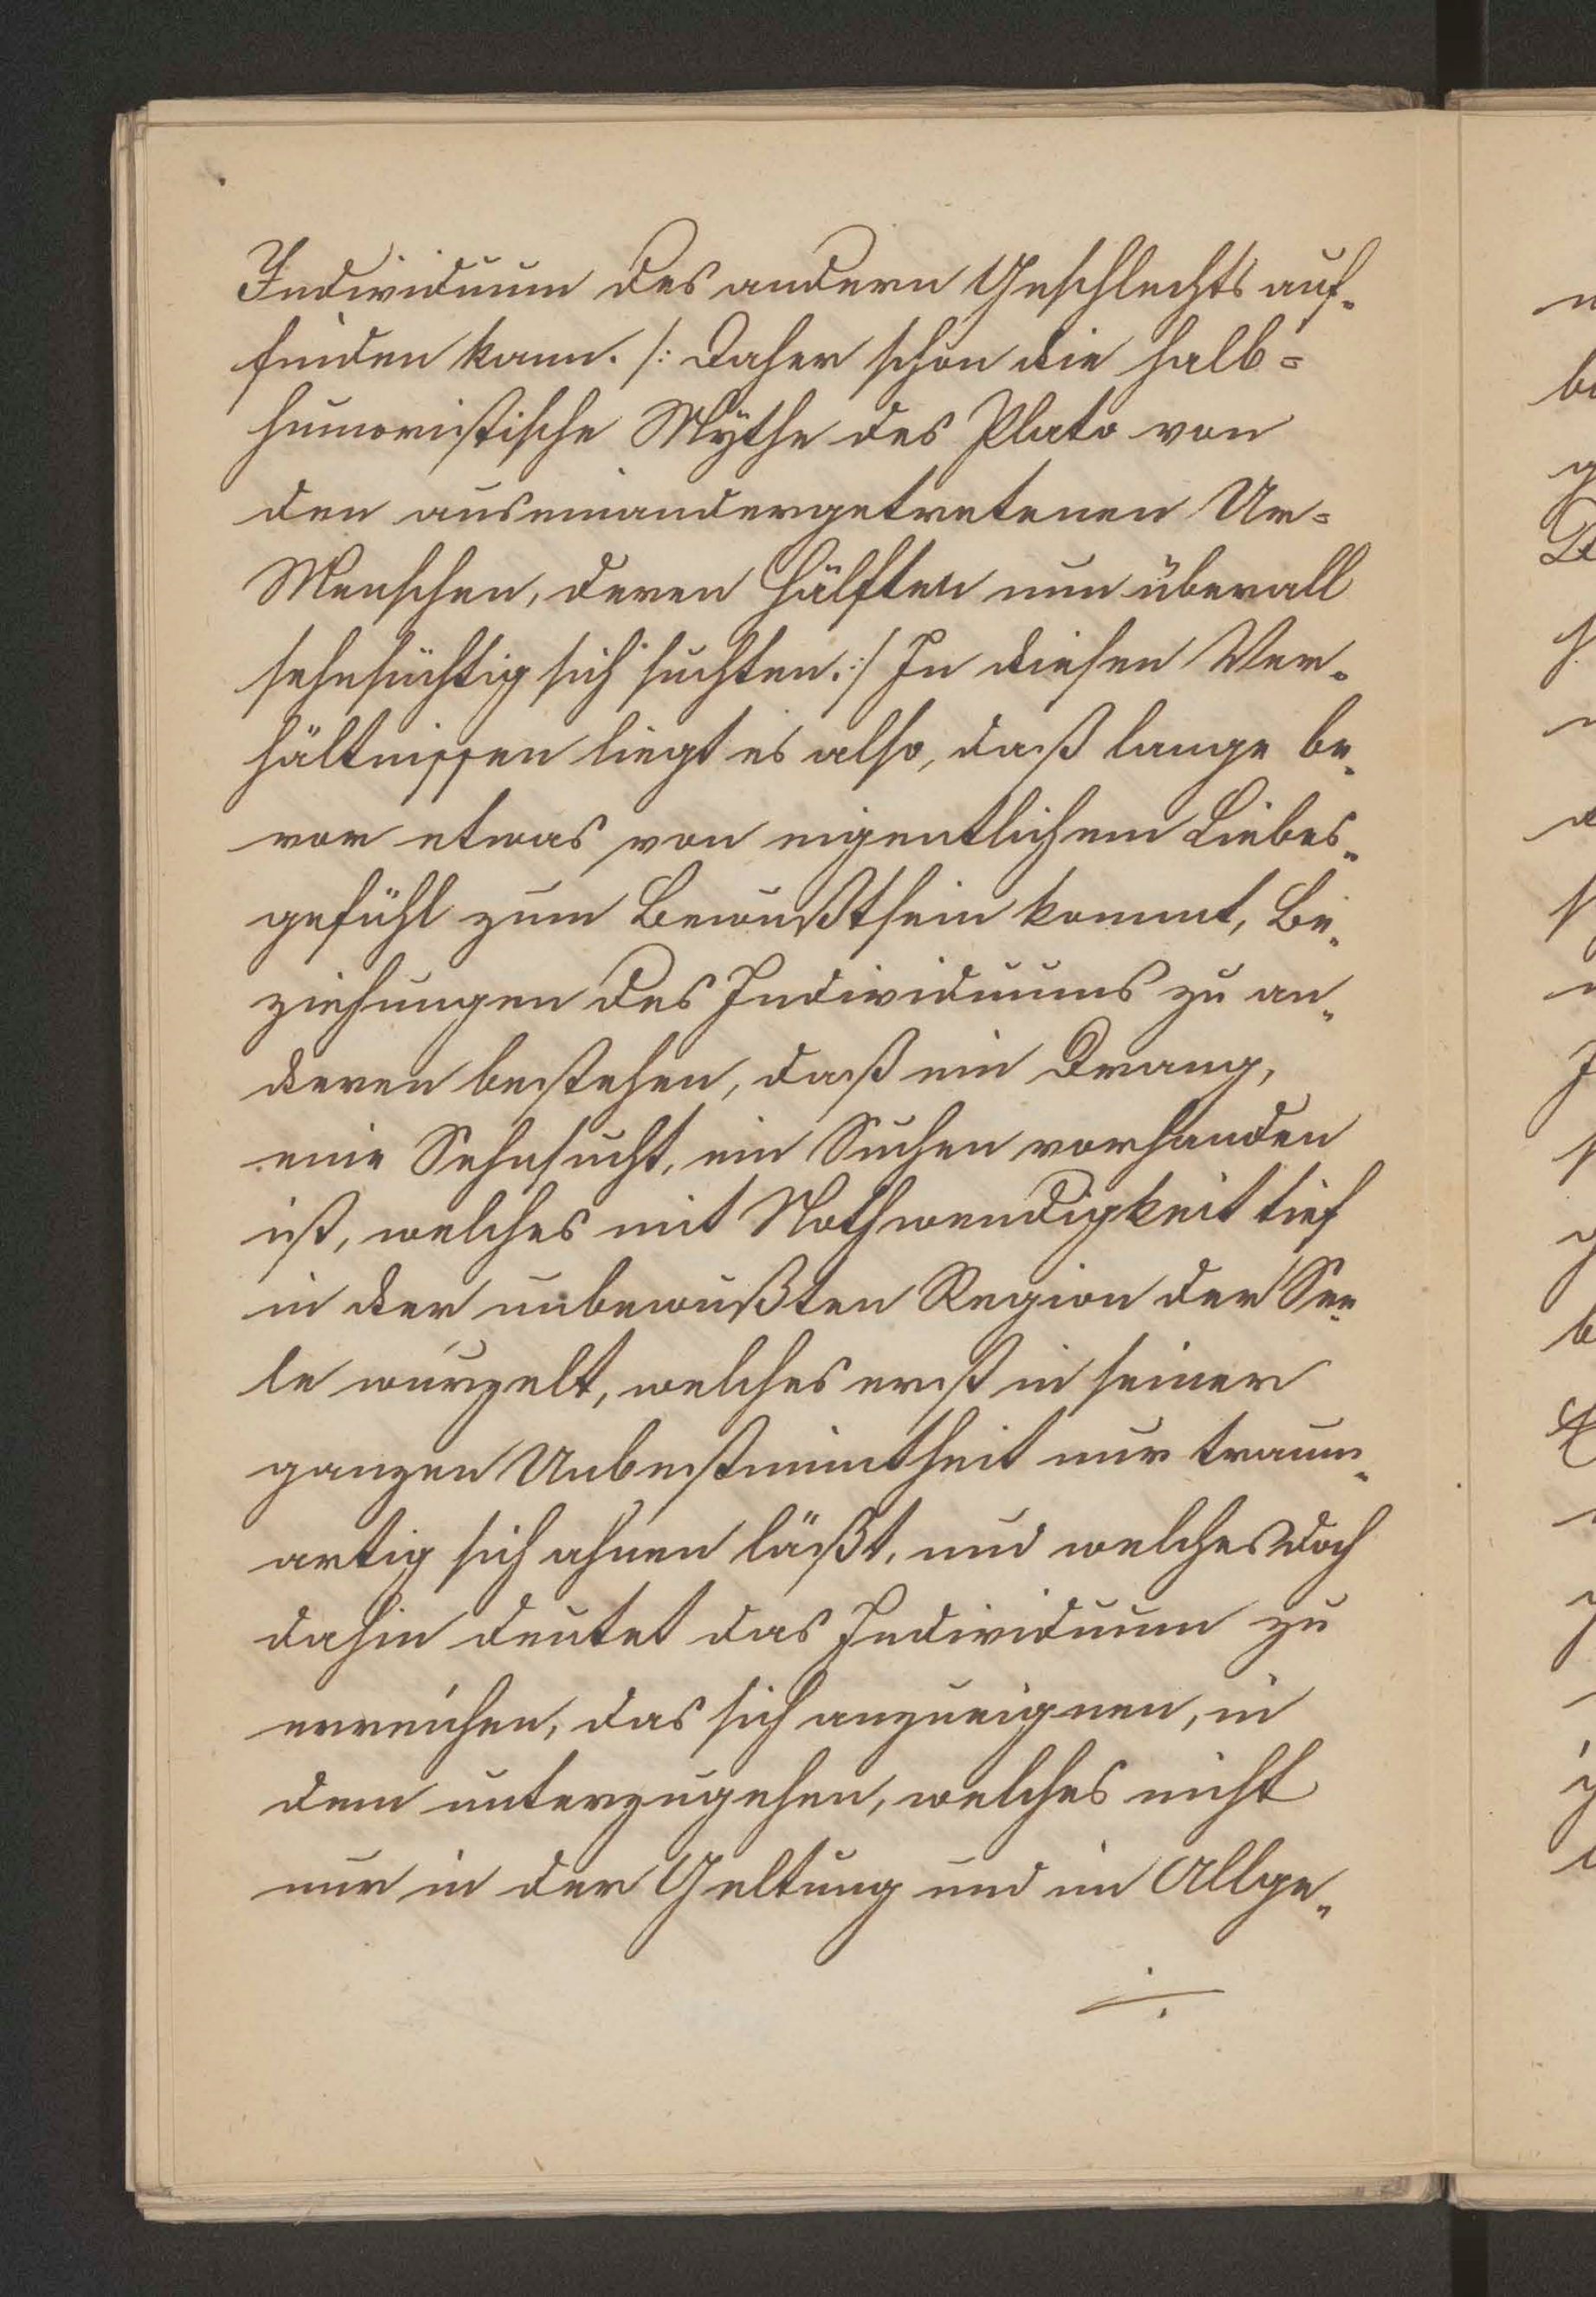 Individuum des andern Geschlechts auf-
finden kann. /: Daher schon die halb=
humoristische Mÿthe des Plato von
den auseinandergetretenen Ur=
Menschen, deren Hälften nun überall
sehnsüchtig sich suchten. :/ In diesen Ver-
hältnissen liegt es also, daß lange be-
vor etwas von eigentlichem Liebes-
gefühl zum Bewußtsein kommt, Be-
ziehungen des Individuums zu an-
deren bestehen, daß ein Drang,
eine Sehnsucht, ein Suchen vorhanden
ist, welches mit Nothwendigkeit tief
in der unbewußten Region der See-
le wurzelt, welches erst in seiner
ganzen Unbestimmtheit nur traum-
artig sich ahnen läßt, und welches doch
dahin deutet das Individuum zu
erreichen, das sich anzueignen, in
dem unterzugehen, welches nicht
nur in der Geltung und im Allge-